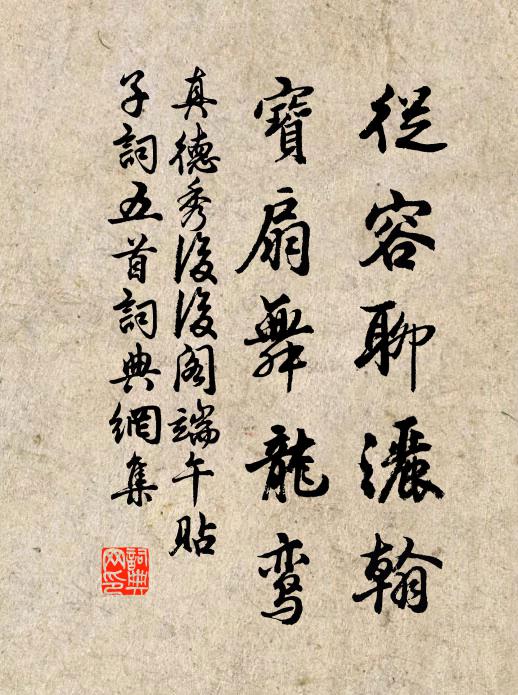 從容聊灑翰
寶扇舞龍鸾
真德秀後後阁端午貼
子詞五首詞典網集
詞典
网印